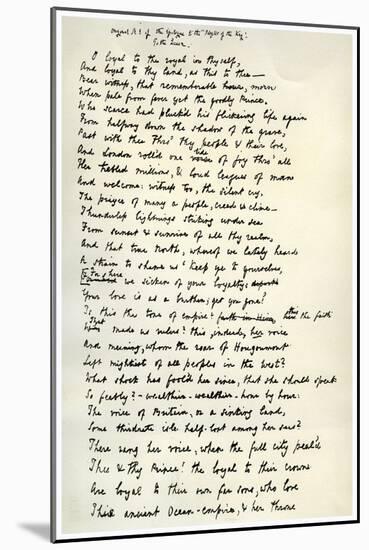 Original M.S. of the Epilogue to the "Idylls of the King".
To the Queen
O loyal to the royal in thyself,
And loyal to thy land, as this to thee—
Bear witness, that rememberable hour, morn
When pale from fever yet the goodly Prince,
Who scarce had pluck'd his flickering life again
From halfway down the shadow of the grave,
Past with thee thro' thy people & their love,
tide
And London roll'd one of joy thro' all
Her trebled millions, & loud leagues of man
And welcome: witness too, the silent cry,
The prayer of many a people, creed & clime—
Thunderless lightnings striking under sea
From sunset & sunrise of all thy realm,
And that true North, whereof we lately heard
A strain to shame us 'Keep ye to yourselves,
So we sicken of your loyalty;
Your love is as a burthen: get you gone!'
Is this the tone of empire? faith in them, the faith
That
made us rulers? this, indeed, her voice
And meaning, whom the roar of Hougoumont
Left mightiest of all peoples in the west?
What shock has fool'd her since, that she should speak
So feebly? - wealthier - wealthier - hour by hour:
The voice of Britain, or a sinking land,
Some thirdrate isle half-lost among her seas?
There rang her voice, when the full city peal'd
Thee & thy Prince! the loyal to their crown
Are loyal to their own far sons, who love
Their ancient Ocean-empire, & her throne